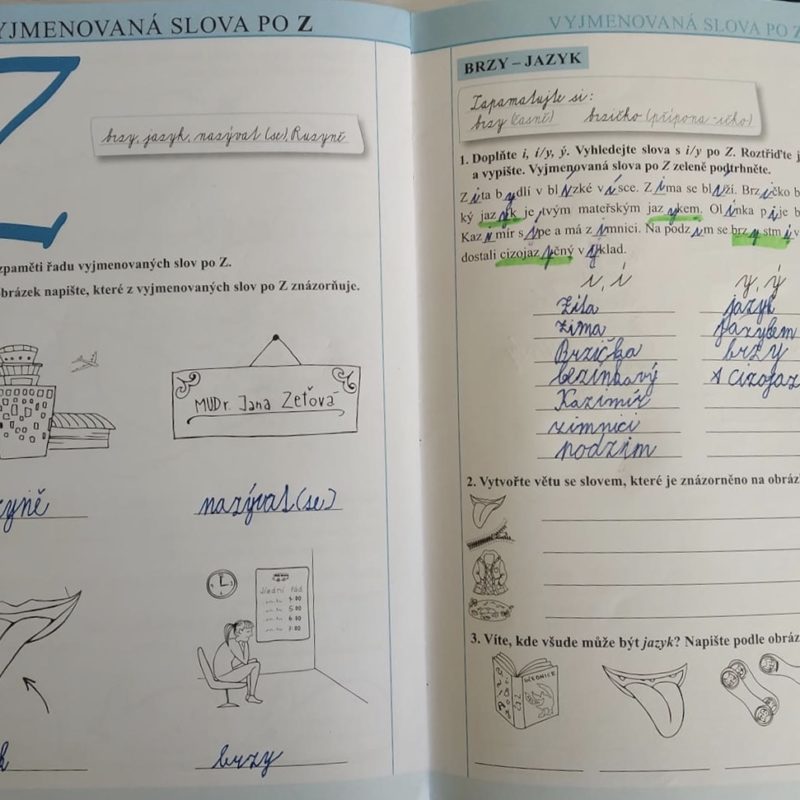 VYJMENOVANÁ SLOVA PO Z
Z
brzy, jazyk, nazývat (se), Ruzyně
zpaměti řadu vyjmenovaných slov po Z.
obrázek napište, které z vyjmenovaných slov po Z znázorňuje.
MUDr. Jana Zeťová
zyně
nazývat (se)
Jízdní řád
5:00
6:00
7:00
k
brzy
VYJMENOVANÁ SLOVA PO Z
BRZY – JAZYK
Zapamatujte si:
brzy (časně) brzičko (přípona -ičko)
1. Doplňte i, í/y, ý. Vyhledejte slova s i/y po Z. Roztřiďte j
a vypište. Vyjmenovaná slova po Z zeleně podtrhněte.
Zita bydlí v blízké vísce. Zima se blíží. Brzičko b
ký jazyk je tvým mateřským jazykem. Olinka pije b
Kazimír sípe a má zimnici. Na podzim se brzy stmívá
dostali cizojazyčný výklad.
i, í y, ý
Zita jazyk
zima jazykem
Brzička brzy
bezinkavý A cizojaz
Kazimír
zimnici
podzim
2. Vytvořte větu se slovem, které je znázorněno na obráz
3. Víte, kde všude může být jazyk? Napište podle obráz
UČEBNICE